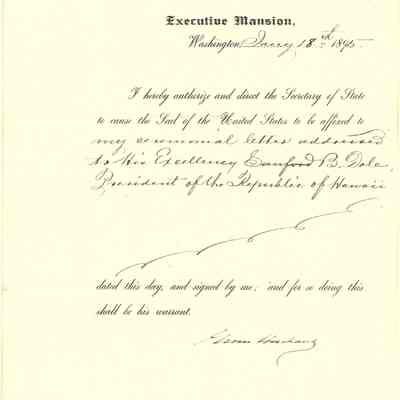 Executive Mansion,
Washington, Jany 18th 1895.
I hereby authorize and direct the Secretary of State
to cause the Seal of the United States to be affixed to
my ceremonial letter addressed
to His Excellency Sanford B. Dole,
President of the Republic of Hawaii
dated this day, and signed by me; and for so doing this
shall be his warrant.
Grover Cleveland